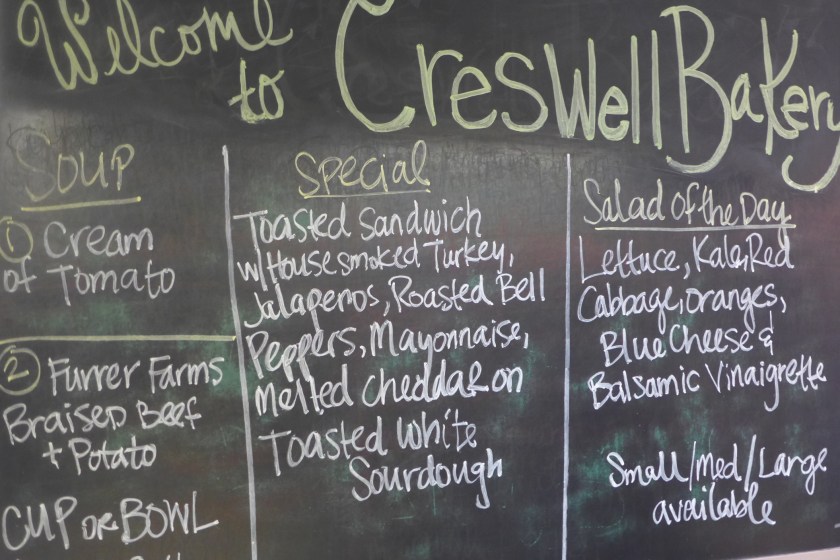 Welcome
to CresWell Bakery
SOUP
① Cream
of Tomato
② Furrer Farms
Braised Beef
+ Potato
CUP or BOWL
Special
Toasted Sandwich
w/ House smoked Turkey,
Jalapenos, Roasted Bell
Peppers, Mayonnaise,
Melted Cheddar on
Toasted White
Sourdough
Salad of the Day
Lettuce, Kale, Red
Cabbage, Oranges,
Blue Cheese &
Balsamic Vinaigrette
Small/Med/Large
available